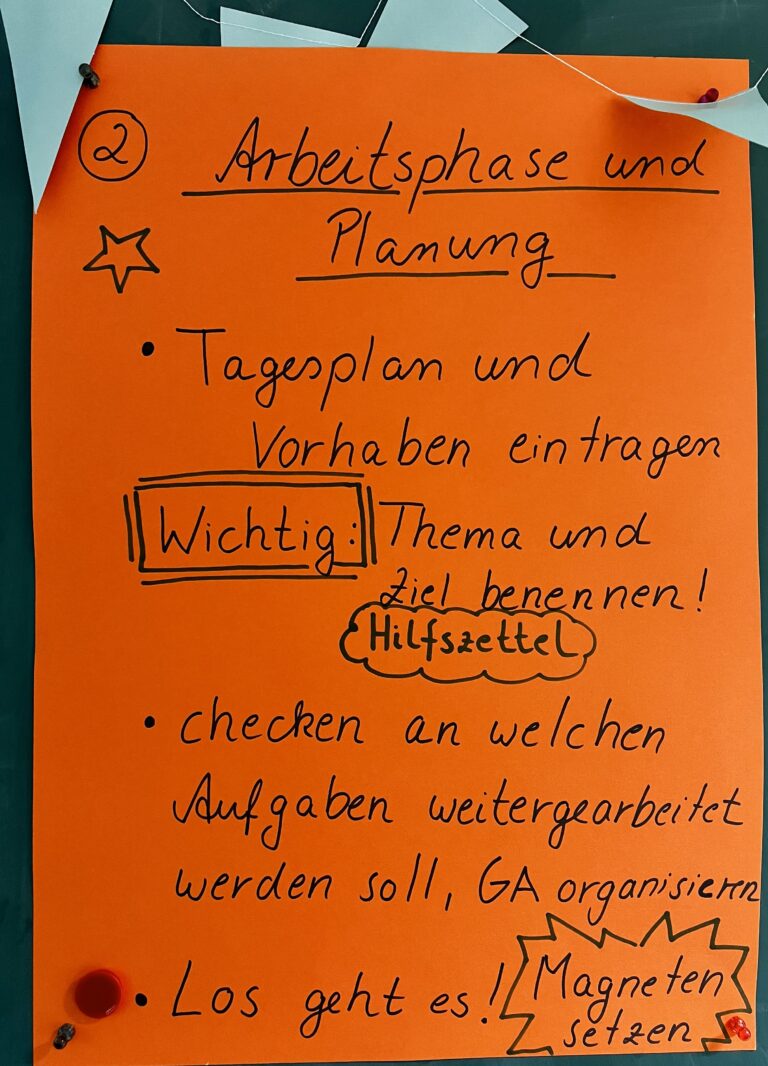 2 Arbeitsphase und
Planung
• Tagesplan und
Vorhaben eintragen
Wichtig: Thema und
Ziel benennen!
Hilfszettel
• checken an welchen
Aufgaben weitergearbeitet
werden soll, GA organisieren
• Los geht es! Magneten
setzen